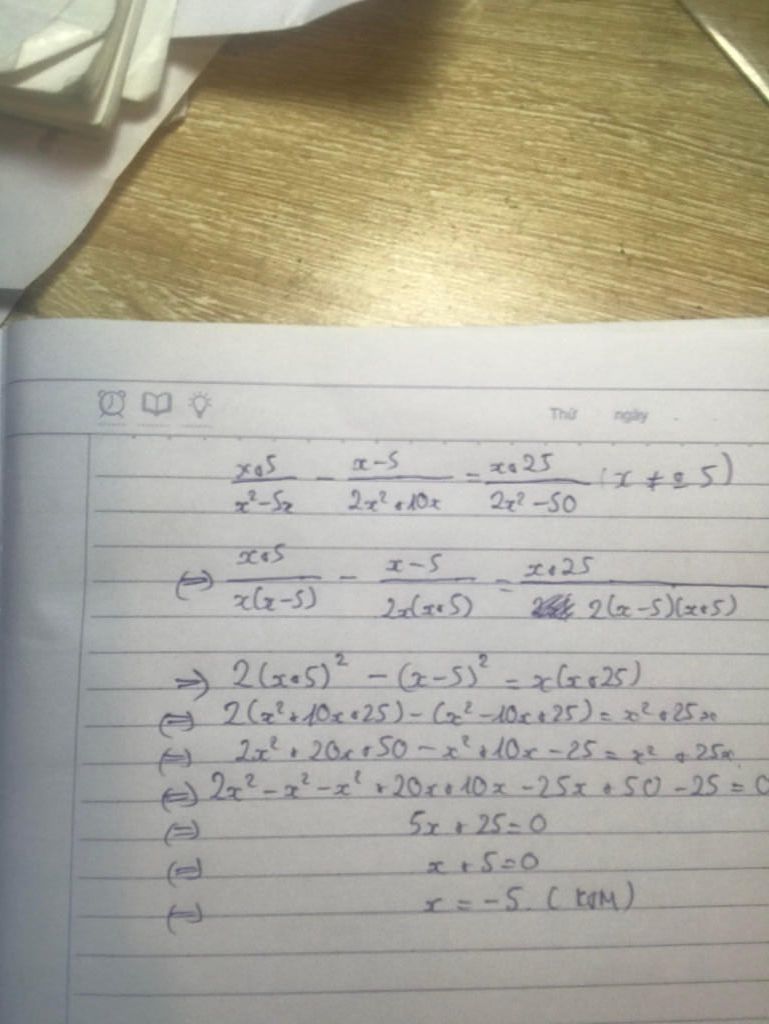 Thứ ngày
x+5/x²-5x - x-5/2x²+10x = x+25/2x²-50 (x ≠ ± 5)
⇔ x+5/x(x-5) - x-5/2x(x+5) = x+25/2(x-5)(x+5)
⇒ 2(x+5)² - (x-5)² = x(x+25)
⇔ 2(x²+10x+25) - (x²-10x+25) = x²+25x
⇔ 2x²+20x+50-x²+10x-25 = x²+25x
⇔ 2x²-x²-x²+20x+10x-25x+50-25 = 0
⇔ 5x+25=0
⇔ x+5=0
⇔ x=-5 (KTM)